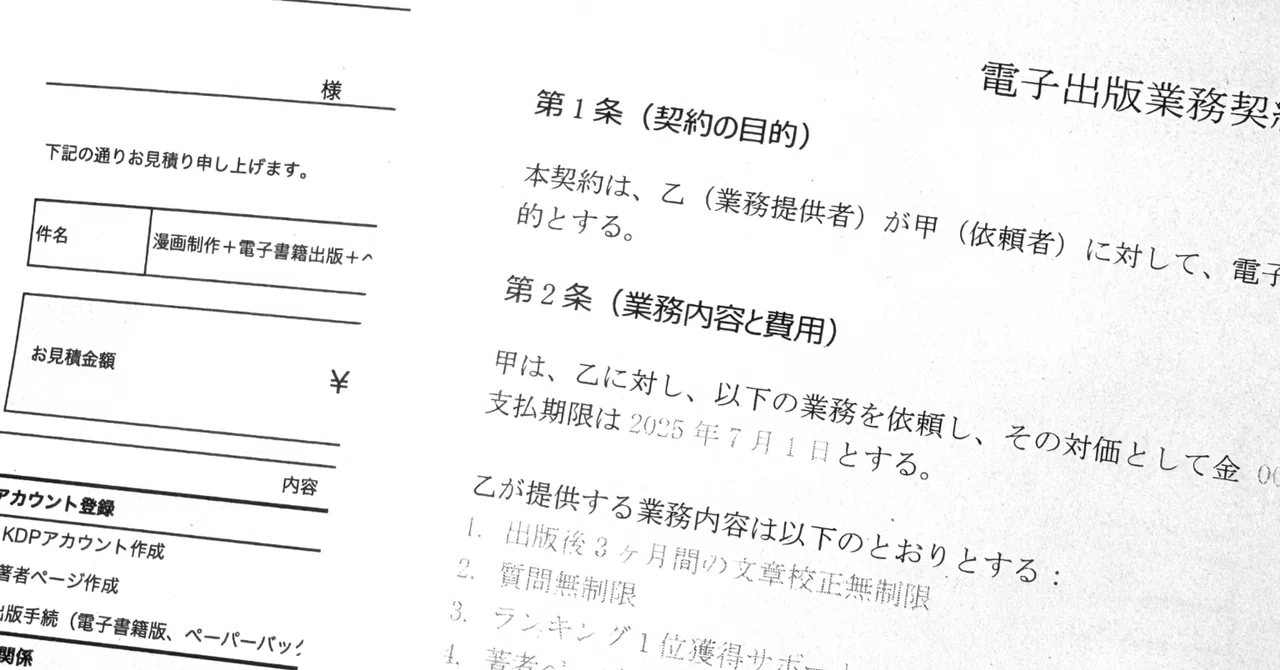 様
下記の通りお見積り申し上げます。
件名
漫画制作＋電子書籍出版＋
お見積金額
¥
内容
アカウント登録
KDPアカウント作成
著者ページ作成
出版手続（電子書籍版、ペーパーバック
関係
電子出版業務契約
第1条（契約の目的）
本契約は、乙（業務提供者）が甲（依頼者）に対して、電子
的とする。
第2条（業務内容と費用）
甲は、乙に対し、以下の業務を依頼し、その対価として金 00
支払期限は 2025年7月1日とする。
乙が提供する業務内容は以下のとおりとする：
1. 出版後3ヶ月間の文章校正無制限
2. 質問無制限
3. ランキング1位獲得サポート
4. 著者ペ